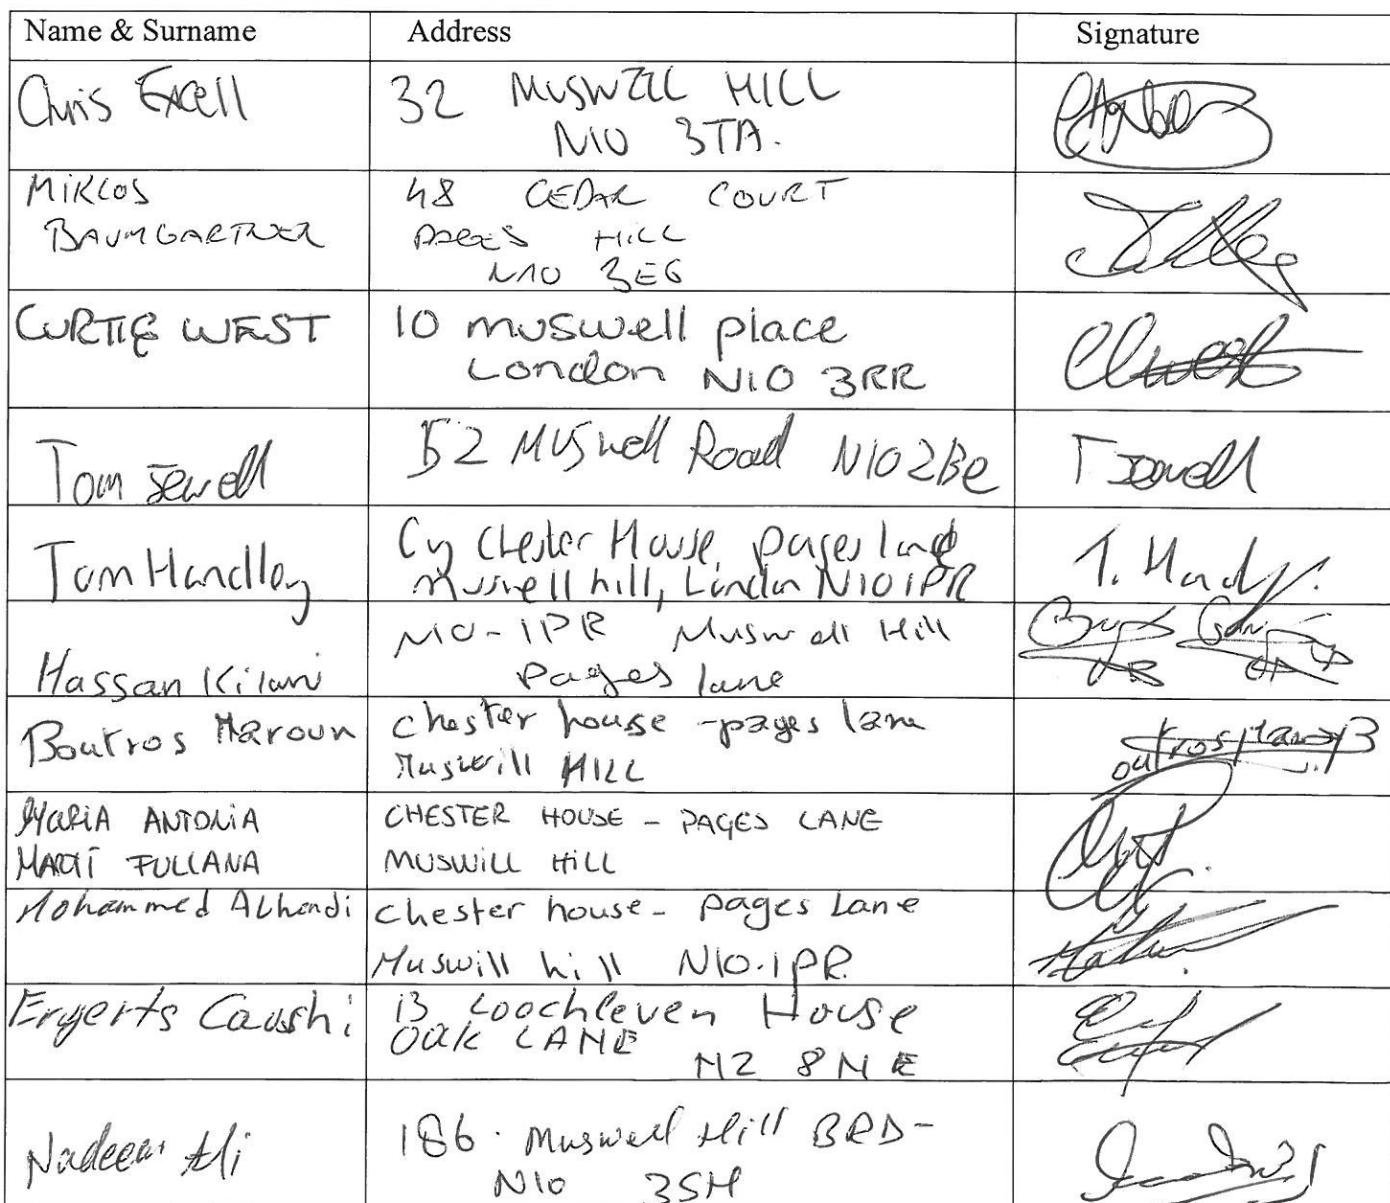 Name & Surname Address Signature
Chris Excell 32 MUSWELL HILL
N10 3TA.
MIKLOS 48 CEDAR COURT
BAUMGARTNER PAGES HILL
N10 3EG
CURTIS WEST 10 muswell place
London N10 3RR
Tom Jewell 52 Muswell Road N10 2Be T Jewell
Tom Handley Chester House, pages lane
Muswell hill, London N10 1PR
Hassan Kilani N10-1PR Muswell Hill
Pages lane
Boutros Maroun chester house - pages lane
Muswill HILL
MARIA ANTONIA CHESTER HOUSE - PAGES LANE
MARTÍ FULLANA MUSWILL HILL
Mohammed ALhendi chester house - pages Lane
Muswill hill N10.1PR
Ergerts Caushi 13 Loochleven House
OAK LANE
N2 8NE
Nadeem Ali 186. Muswell Hill BRD-
N10 3SH